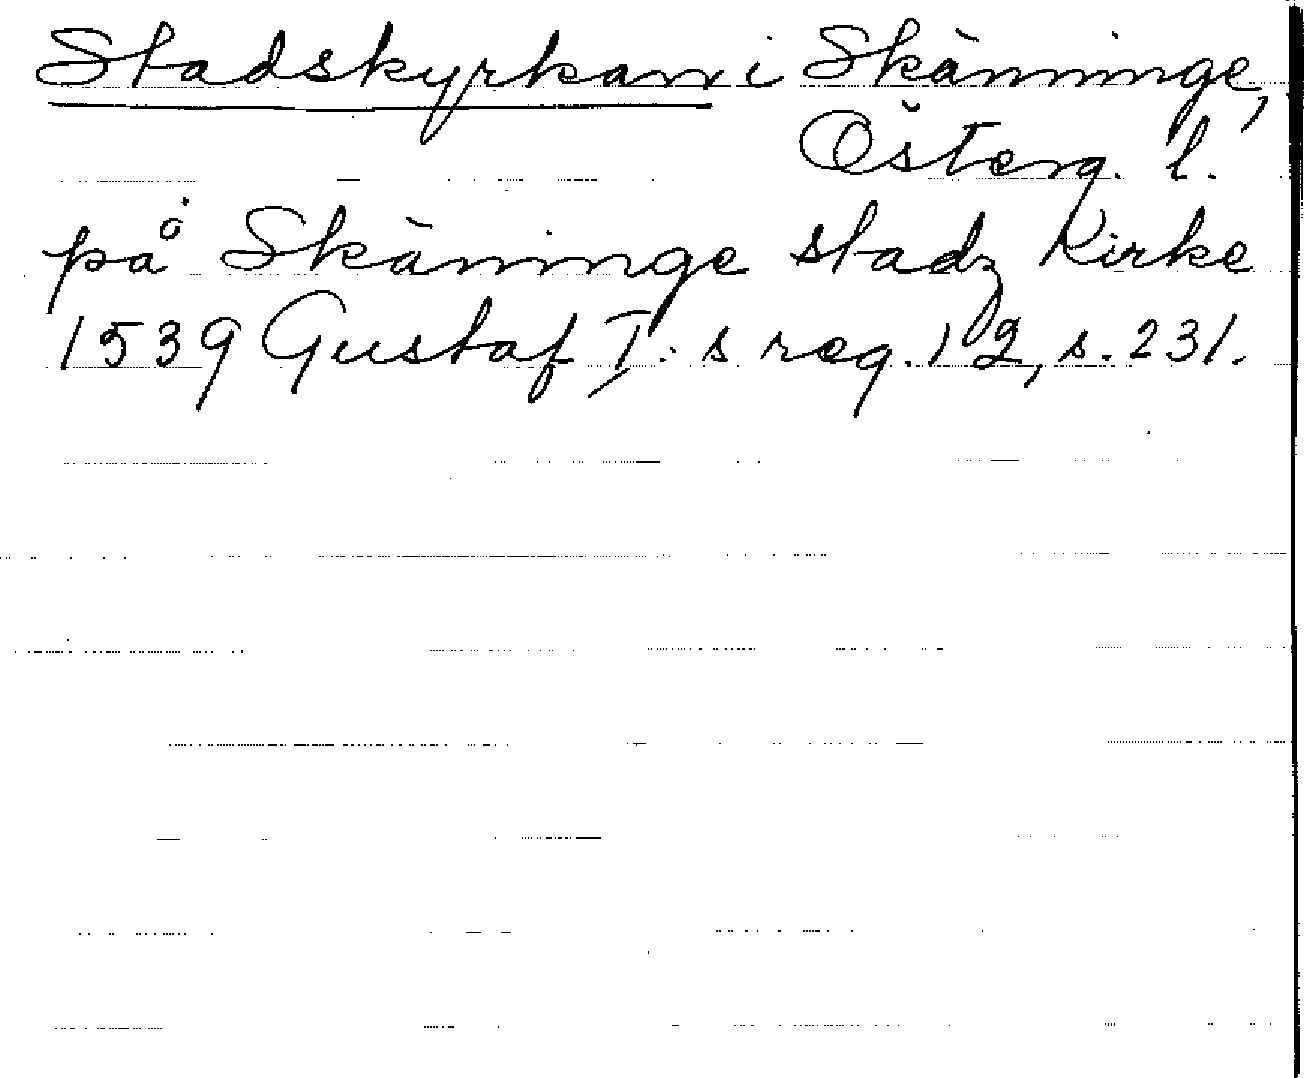 Stadskyrkan i Skänninge,
Österg. l.
på Skäninge stadz Kirke
1539 Gustaf I:s reg. 12, s. 231.